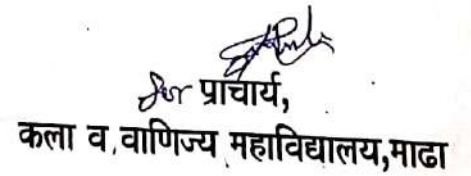 for प्राचार्य,
कला व वाणिज्य महाविद्यालय,माढा